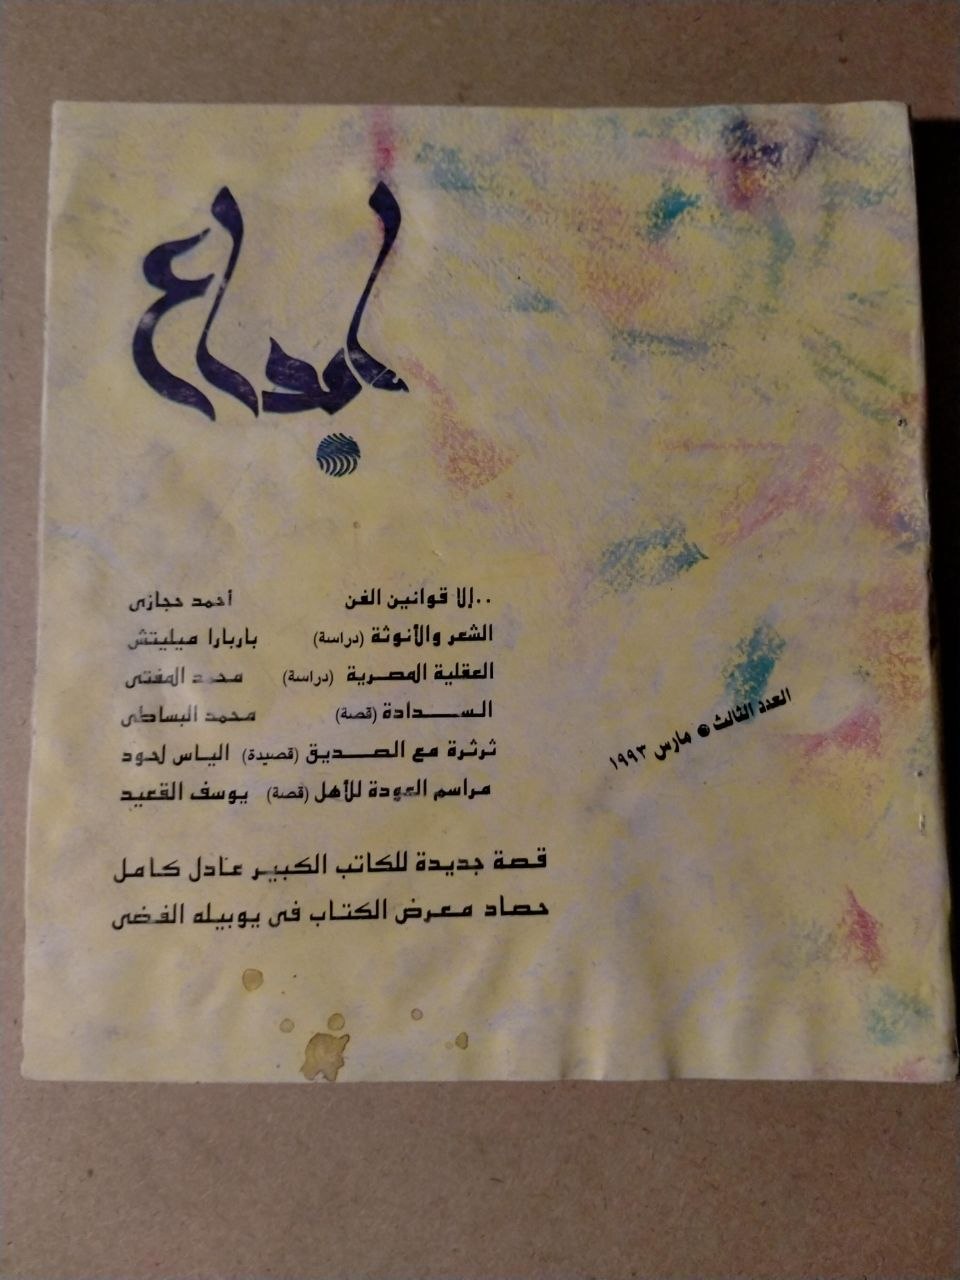 إبداع
..إلا قوانين الفن أحمد حجازى
الشعر والأنوثة (دراسة) باربارا ميليتش
العقلية المصرية (دراسة) محمد المفتى
الســـدادة (قصة) محمد البساطى
ثرثرة مع الصـديق (قصيدة) الياس لحود
مراسم العودة للأهل (قصة) يوسف القعيد
العدد الثالث مارس ١٩٩٣
قصة جديدة للكاتب الكبير عادل كامل
حصاد معرض الكتاب فى يوبيله الفضى